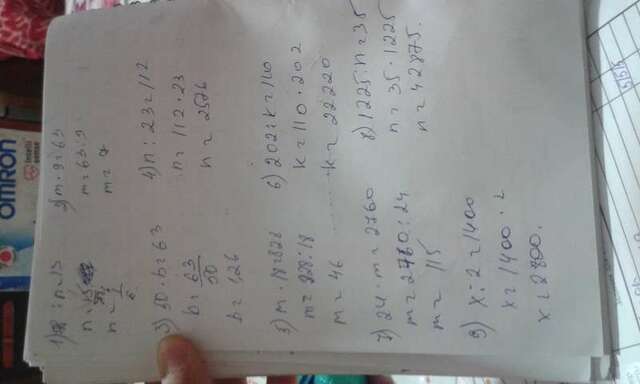 OMRON
intelli
sense
1) : n = 15
n = 15
n =
2) m · 9 = 63
m = 63 : 9
m = 7
3) 50 · b = 63
b = 63/50
b = 1,26
4) n : 23 = 112
n = 112 · 23
n = 2576
5) m · 18 = 828
m = 828 : 18
m = 46
6) 202 : k = 110
k = 110 · 202
k = 22220
7) 24 · m = 2760
m = 2760 : 24
m = 115
8) 1225 : n = 35
n = 35 · 1225
n = 42875.
9) x : 2 = 1400
x = 1400 · 2
x = 2800.